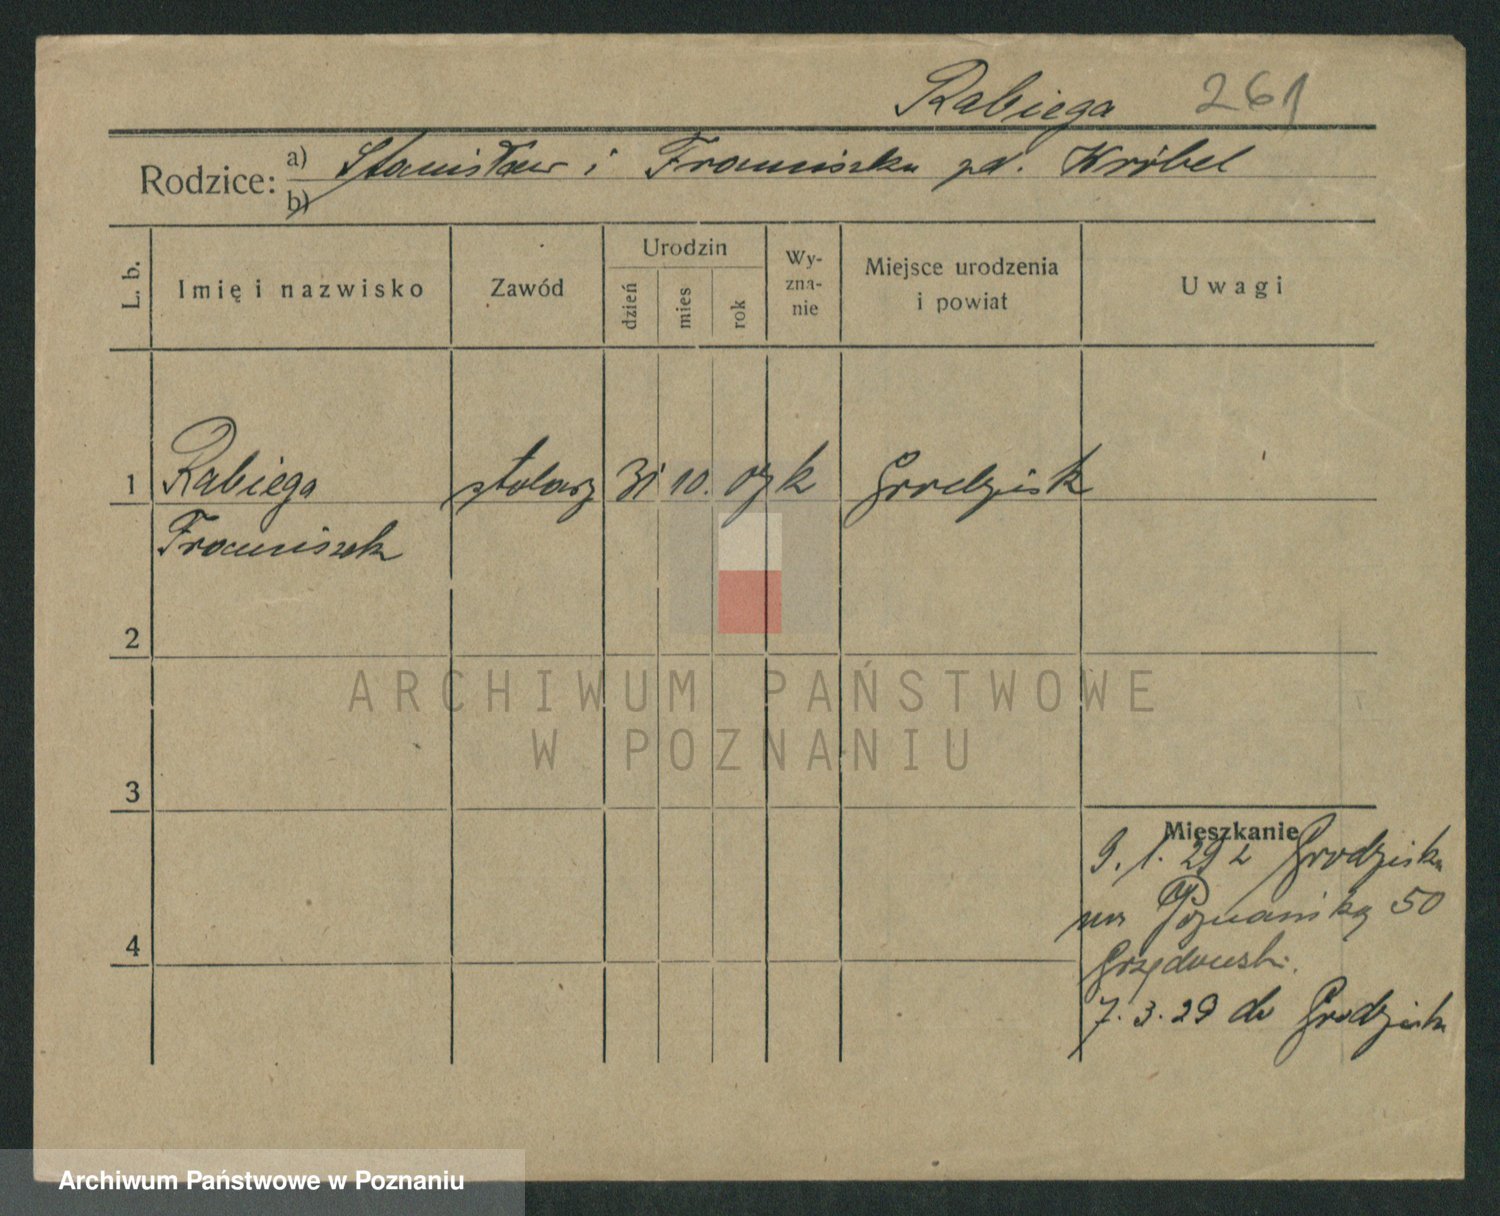 Rabiega 261
Rodzice: a) Stanisław i Franciszka zd. Kröbel
b)
L. b. Imię i nazwisko Zawód Urodzin dzień mies rok Wy-zna-nie Miejsce urodzenia i powiat Uwagi
1 Rabiega stolarz 31 10. 07 k Grodzisk
Franciszek
2
ARCHIWUM PAŃSTWOWE
W POZNANIU
3
Mieszkanie
9. 1. 29 z Grodziska
na Poznańską 50
4
7. 3. 29 do Grodziska
Archiwum Państwowe w Poznaniu